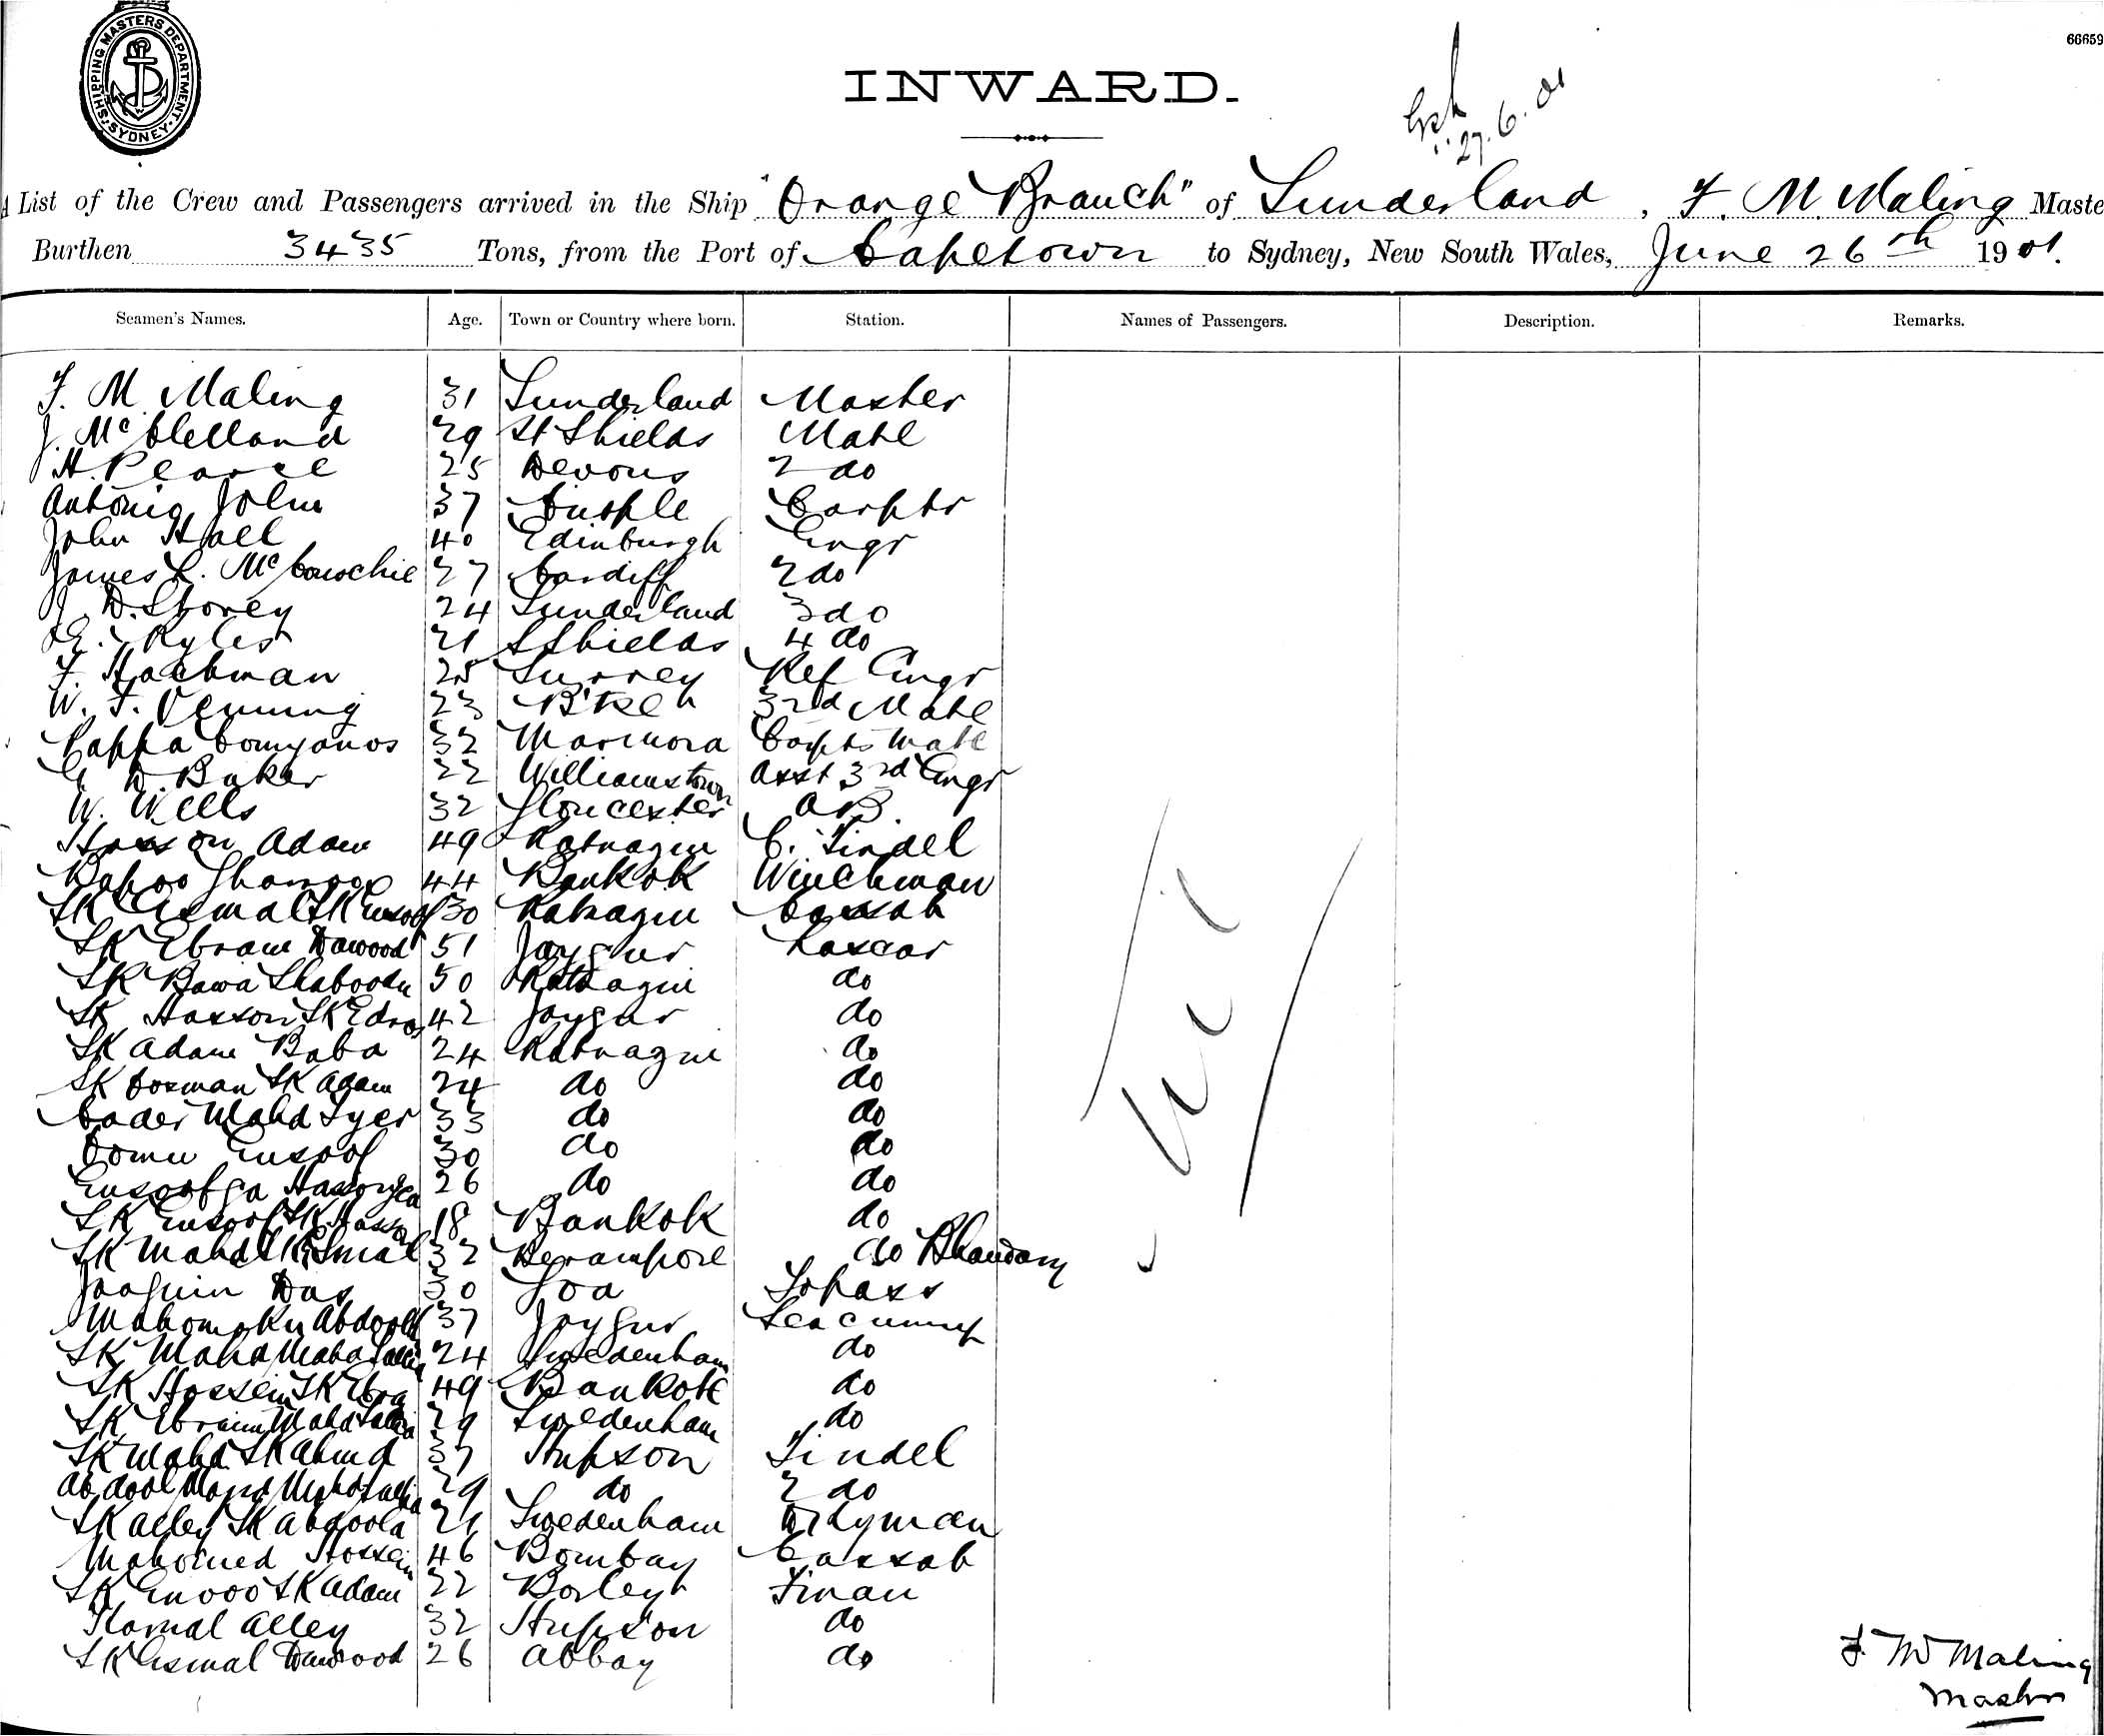 SHIPPING MASTERS DEPARTMENT. SYDNEY.
66659
INWARD.
27.6.01
List of the Crew and Passengers arrived in the Ship "Orange Branch" of Sunderland, F. M. Maling Maste
Burthen 3435 Tons, from the Port of Capetown to Sydney, New South Wales, June 26th 1901.
Seamen's Names. Age. Town or Country where born. Station. Names of Passengers. Description. Remarks.
F. M. Maling 31 Sunderland Master
J. McClelland 29 St Shields Mate
H. Pearce 25 Devons 2 do
Antonio John 37 Carptr
John Hall 40 Edinburgh Engr
James L. McConochie 27 Cardiff 2 do
J. D. Storey 24 Sunderland 3 do
E. Ryles 21 S Shields 4 do
F. Hackman 25 Surrey Ref Engr
W. F. Venning 23 3rd Mate
Pappa 32 Marmora Carptrs Mate
D. Baker 22 Williamstown Asst 3rd Engr
W. Wells 32 Gloucester AB
Hasson Adam 49 Ratnagiri C. Tindel
44 Bankok Winchman
SK Esmal SK Eusoof 30 Ratnagiri Cassab
SK Ebram Dawood 51 Joygur Lascar
SK Bawa 50 Ratnagiri do
SK Hasson SK 42 Joygur do
SK Adam Baba 24 Ratnagiri do
SK Oosman SK Adam 24 do do
Cader Mahd Syer 33 do do
Eusoof 30 do do
26 do do
SK Eusoof SK Hasson 18 Bankok do
SK Mahd SK Esmal 32 Derampore do Bhandary
Joaquim Das 30 Goa Topass
Abdoola 37 Joygur Seacunny
SK Mahd Mahd 24 Swedenham do
SK Hossein SK 49 Bankok do
SK Ebraim Mahd 29 Swedenham do
SK Mahd SK Ahmd 37 Hupson Tindel
Abdool 29 do 2 do
SK Alley SK Abdoola 21 Swedenham
Mahomed Hossein 46 Bombay Cassab
SK SK Adam 22 Borleyt Firman
Kamal Alley 32 Hupson do
SK Esmal Dawood 26 Abbay do
Nil
F. M Maling
Master